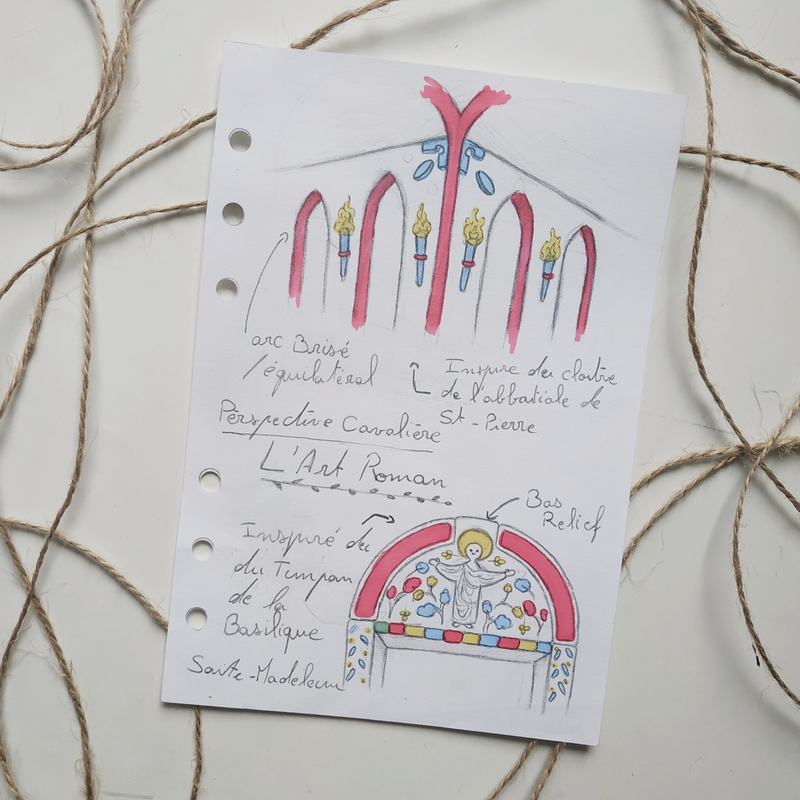 arc Brisé
/équilatéral
Inspire du cloitre
de l'abbatiale de
St-Pierre
Perspective Cavalière
L'Art Roman
Bas
Relief
Inspiré du
du Timpan
de la
Basilique
Sainte-Madeleine